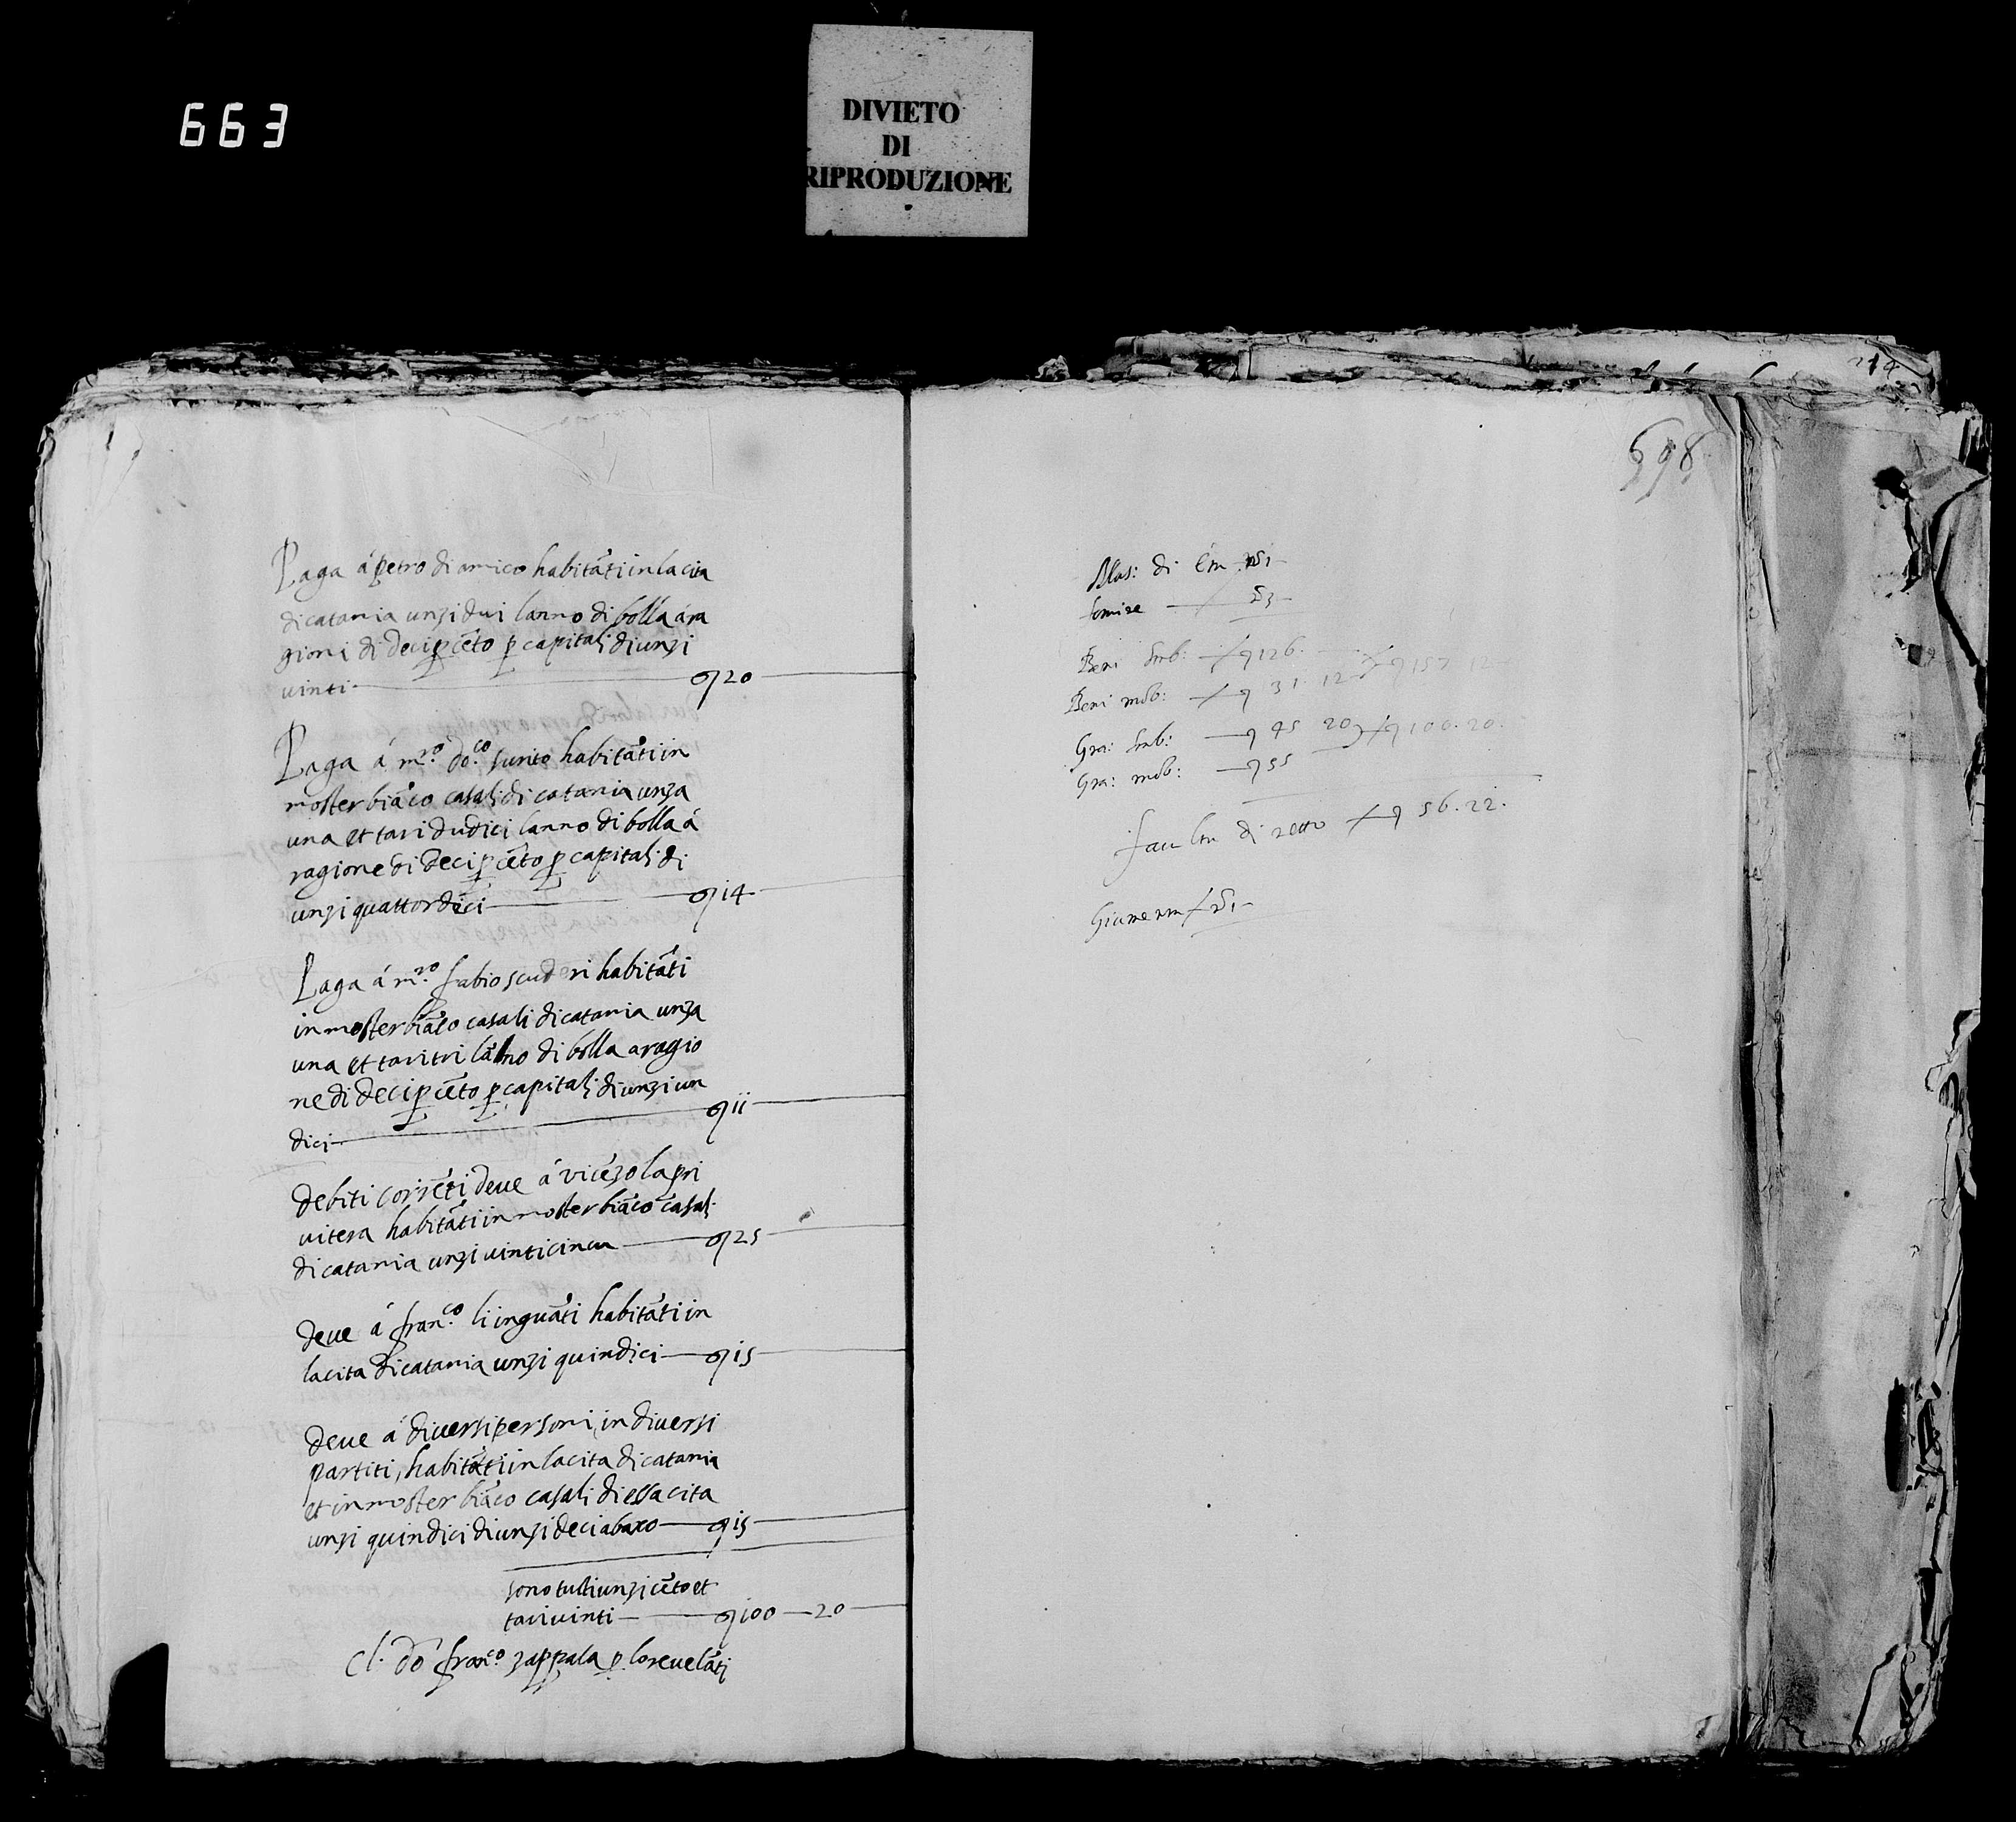 663
DIVIETO
DI
RIPRODUZIONE
214
Paga á petro di amico habitāti in la cita
di catania unzi dui lanno di bolla á ra
gioni di deci p cēto p capitali di unzi
vinti 20
Paga á m.ro do.co surito habitāti in
moster biāco casali di catania unza
una et tari dudici lanno di bolla á
ragione di deci p cēto p capitali di
unzi quattordeci 14
Paga á m.ro fabio scuderi habitāti
in moster biāco casali di catania unza
una et tari tri lanno di bolla a ragio
ne di deci p cēto p capitali di unzi un
dici 11
debiti corrēti deve á vicēzo la pri
vitera habitāti in moster biāco casali
di catania unzi vinticincu 25
deve á fran.co li inguāti habitāti in
la cita di catania unzi quindici 15
deve á diversi personi, in diversi
partiti, habitāti in la cita di catania
et in moster biāco casali di essa cita
unzi quindici di unzi deci abaxo 15
sono tutti unzi cēto et
tari vinti 100 — 20
Cl. do fran.co zappala p lo revelāti
598
Beni stab: 126.
Beni mob: 31 12 157 12
Gra: stab: 45 20 100. 20.
Gra: mob: 55
di netto 56. 22.
Giumenta 1